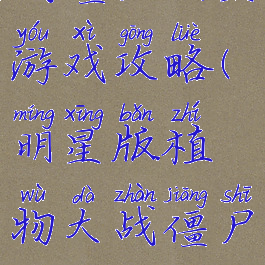 yóu xì gōng lüè
游戏攻略(
míng xīng bǎn zhí
明星版植
wù dà zhàn jiāng shī
物大战僵尸